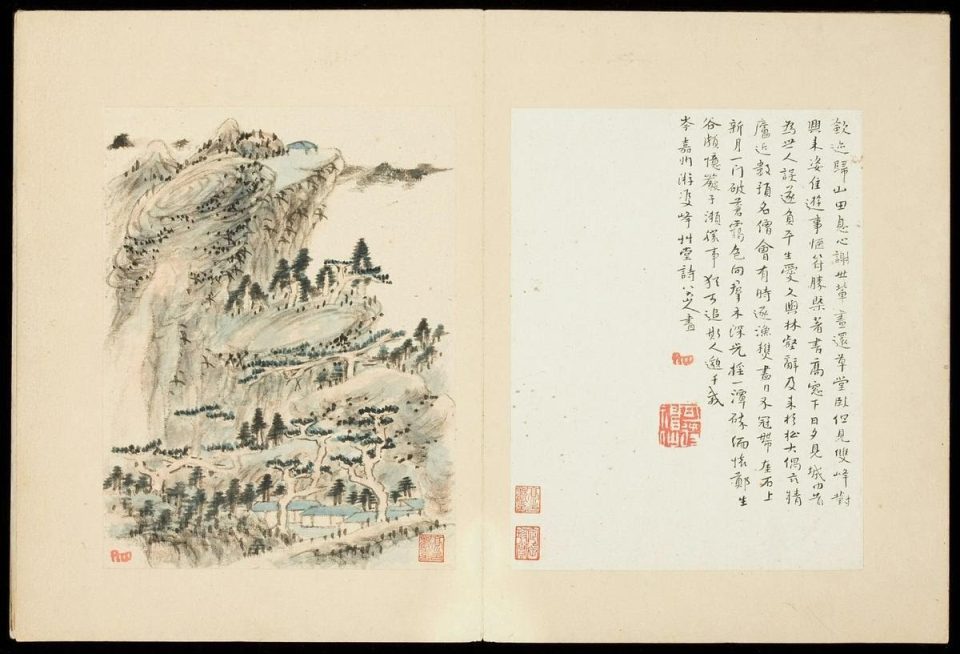 斂迹歸山田息心謝世輩晝還草堂臥但見雙峰對
興来恣佳遊事惬符勝槩著書高窓下日夕見城内昔
為世人誤遂負平生愛久與林壑辭及来杉松大偶茲精
廬近數預名僧會有時逐漁樵盡日不冠帶崖石上
新月一门破蒼靄色向羣木深光摇一潭碎緬懷鄭生
谷頗憶嚴子瀨勝事猶可追斯人邈千載
岑嘉州游雙峰艸堂詩八大山人畫